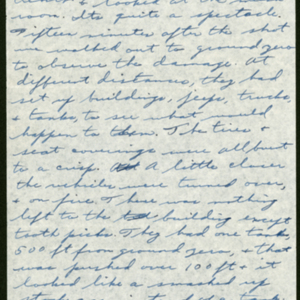 & looked at the mush
room. Its quite a spectacle.
Fifteen minutes after the shot
we walked out to ground zero
to observe the damage. At
different distances, they had
set up buildings, jeeps, trucks,
& tanks, to see what would
happen to them. The tires &
seat coverings were all burt
to a crisp. A little closer
the vehicles were turned over,
& on fire. There was nothing
left to the building except
tooth picks. They had one tank
500 ft from ground zero, & that
was pushed over 100 ft & it
looked like a smashed up